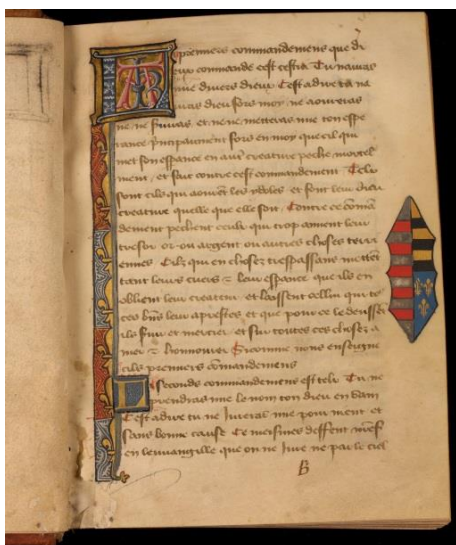 premiers commandemens que di
eux commande cest cestui Tu nauras
mie divers dieux Cest adire ta na
uras dieu fors moy ne aouveras
ne ne serviras et ne ne metteras mie ton espe
rance principaument fors en moy que cil qui
met son esperance en autre creature peche mortel
ment et fait contre cest commandement Telz
sont cilz qui aourent les ydoles et font leur dieu
creature quelle que elle soit Contre ce coman
dement pechent ceulx qui trop aiment leur
tresor or ou argent ou autres choses terri
ennes Cilz qui en choses trespassans mettent
tant leurs cuers et leur esperance que ilz en
oblient leur createur et laissent cellui qui tous
ces biens leur a prestes et que pour ce le deussent
ilz servir et mercier et sur toutes ces choses a
mer et honnourer Sicomme nous enseigne
cilz premiers commandemens
seconds commandemens est telz Tu ne
prendras mie le nom ton dieu en vain
Cest adire tu ne Jureras mie pour nient et
sans bonne cause Ce meismes deffent
en leuvangille que on ne Jure ne par le ciel
B